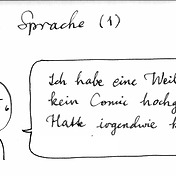 Sprache (1)
Ich habe eine Weil
kein Comic hochg
Hatte irgendwie k